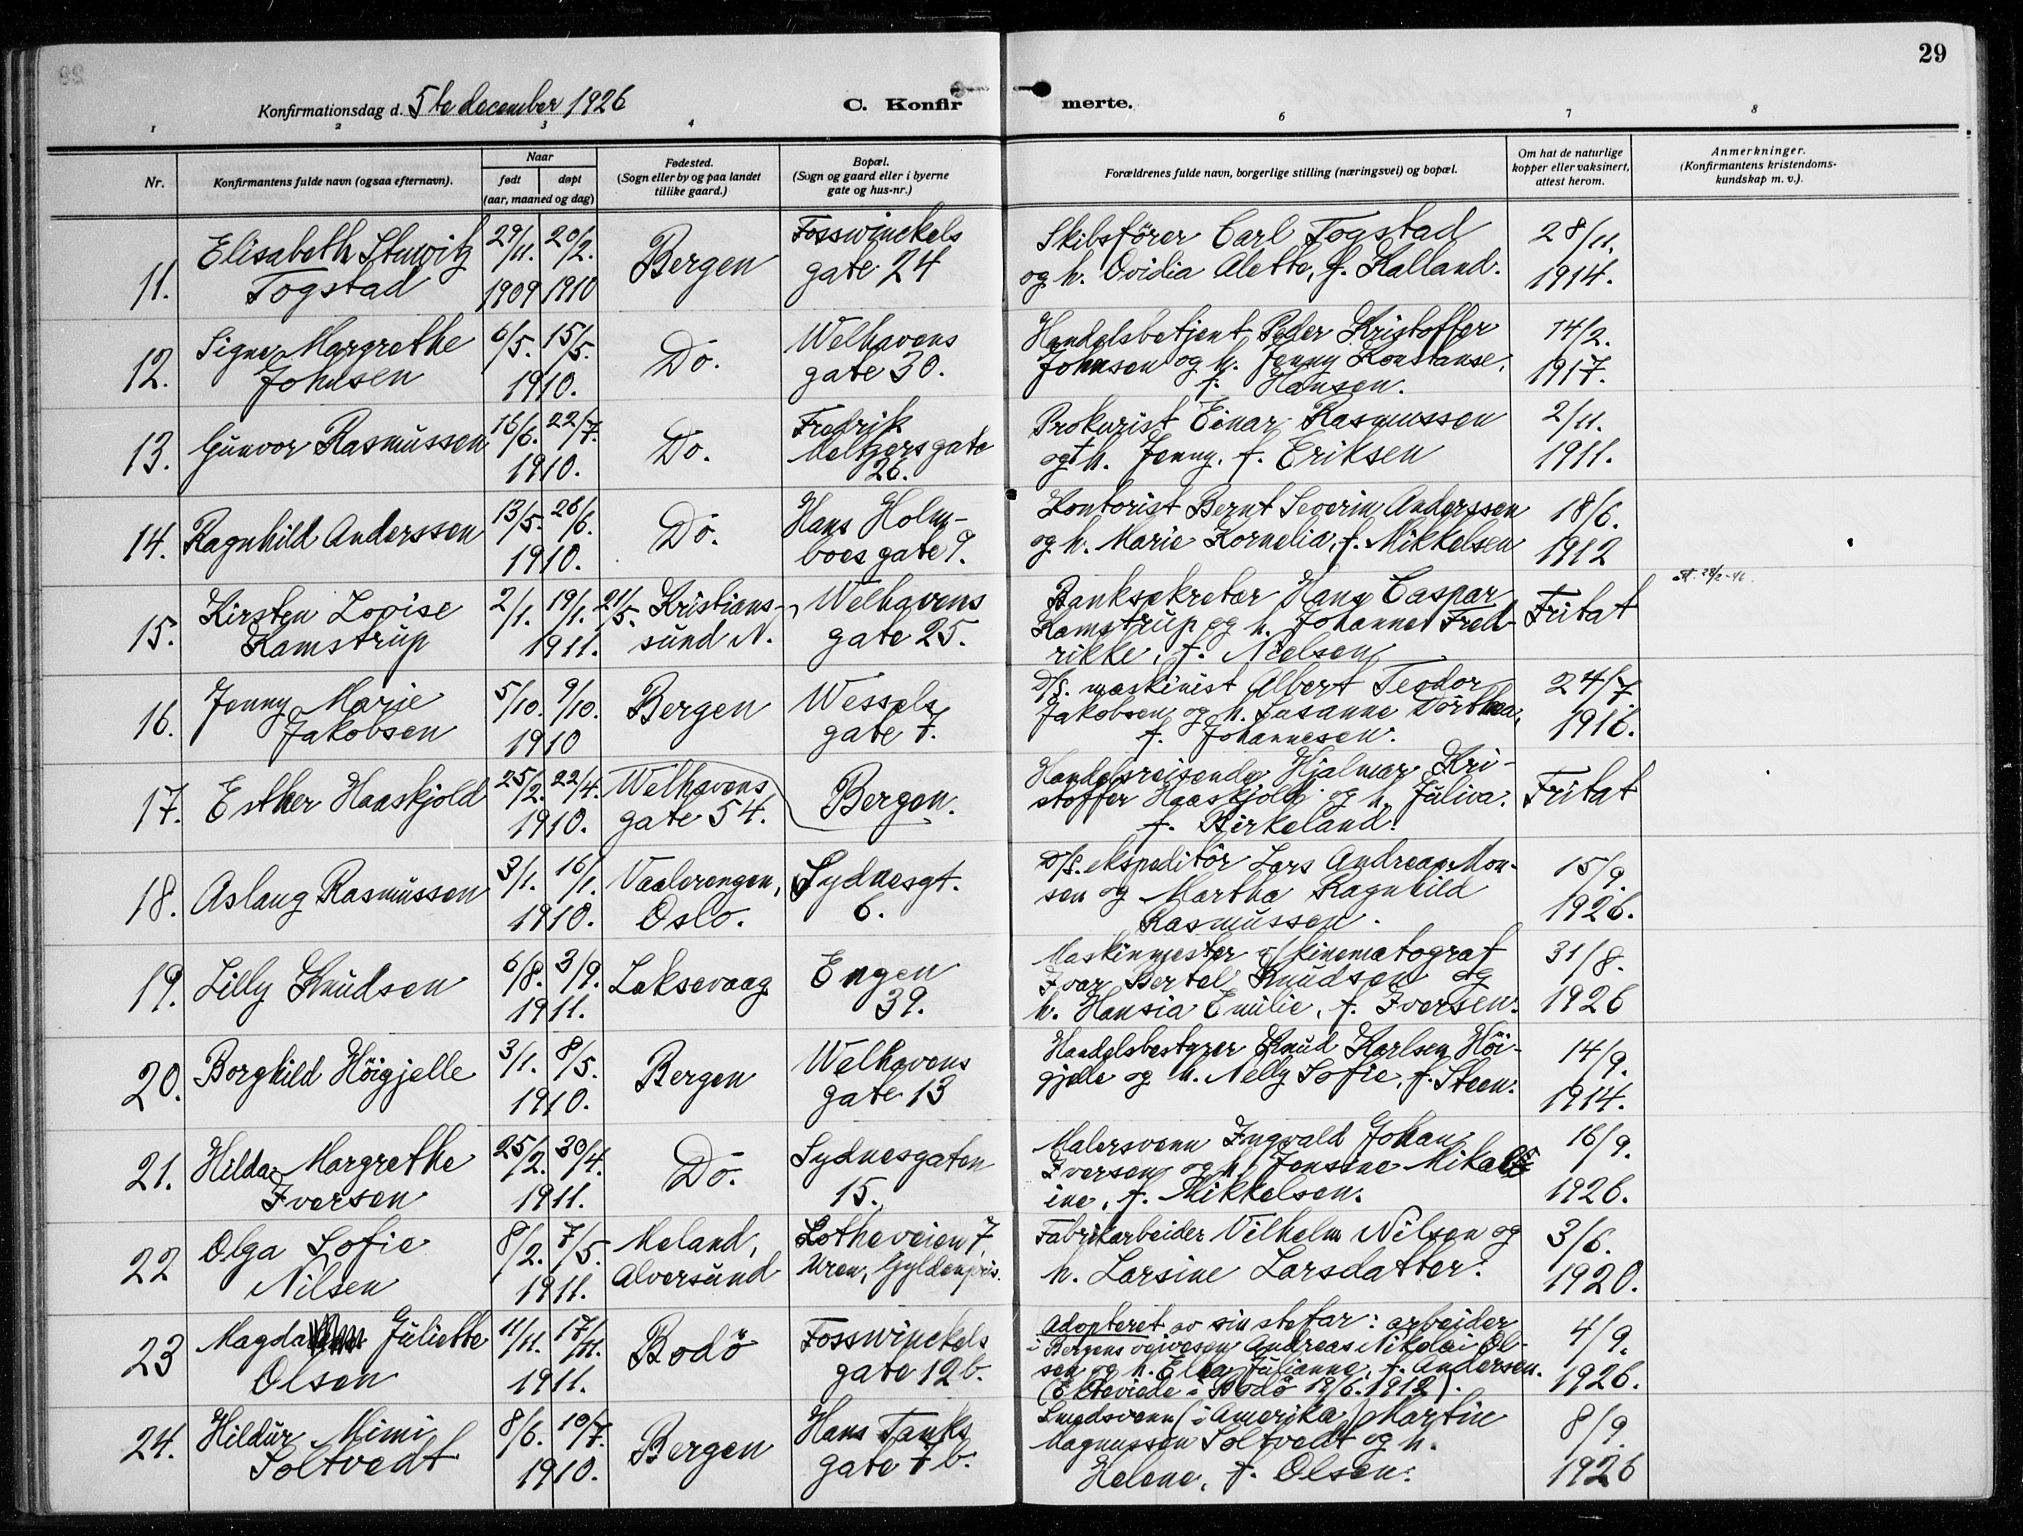 29
Konfirmationsdag d. 5te december 1926
C. Konfirmerte.
1 2 3 4 6 7 8
Nr.
Konfirmantens fulde navn (ogsaa efternavn).
Naar
født døpt
(aar, maaned og dag)
Fødested.
(Sogn eller by og paa landet
tillike gaard.)
Bopæl.
(Sogn og gaard eller i byerne
gate og hus-nr.)
Forældrenes fulde navn, borgerlige stilling (næringsvei) og bopæl.
Om hat de naturlige
kopper eller vaksinert,
attest herom.
Anmerkninger.
(Konfirmantens kristendoms-
kundskap m. v.).
11.
Elisabeth Stuwitz
Togstad
29/11. 20/2.
1909 1910
Bergen
Fosswinckels
gate 24
Skibsförer Carl Togstad
og h. Ovidia Alette, f. Kalland.
28/11.
1914.
12.
Signe Margrethe
Johnsen
6/5. 15/5.
1910.
Do.
Welhavens
gate 30.
Handelsbetjent Peder Kristoffer
Johnsen og h. Jenny Konstanse,
f. Hansen.
14/2.
1917.
13.
Gunvor Rasmussen
16/6. 22/7.
1910.
Do.
Fredrik
Meltzersgate
26.
Prokurist Einar Rasmussen
og † h. Jenny, f. Eriksen
2/11.
1911.
14.
Ragnhild Anderssen
13/5. 26/6.
1910.
Do.
Hans Holm-
boes gate 9.
Kontorist Bernt Severin Anderssen
og h. Marie Kornelia, f. Mikkelsen
18/6.
1912
15.
Kirsten Lovise
Kamstrup
2/1. 19/1. 21/5.
1911.
Kristians-
sund N.
Welhavens
gate 25.
Banksekretær Hans Caspar
Kamstrup og h. Johanne Fred-
rikke, f. Nielsen
Fritat
28/2-46.
16.
Jenny Marie
Jakobsen
5/10. 9/10.
1910
Bergen
Wessels
gate 7.
D/S. maskinist Albert Teodor
Jakobsen og h. Susanne Dorthea,
f. Johannesen.
24/7.
1916.
17.
Esther Haaskjold
25/2. 22/4.
1910.
Welhavens
gate 54.
Bergen.
Handelsreisende Hjalmar Kri-
stoffer Haaskjold og h. Juliva.
f. Birkeland.
Fritat
18.
Aslaug Rasmussen
3/1. 16/1.
1910.
Vaalerengen,
Oslo.
Sydnesgt.
6.
D/S. ekspeditör Lars Andreas Mon-
sen og Martha Ragnhild
Rasmussen.
15/9.
1926.
19.
Lilly Knudsen
6/8. 3/9.
1911.
Laksevaag
Engen
39.
Maskinmester v/ kinematograf
Ivar Bertel Knudsen og
h. Hansia Emilie, f. Iversen.
31/8.
1926
20.
Borghild Höigjelle
3/1. 8/5.
1910.
Bergen
Welhavens
gate 13
Handelsbestyrer Knud Karlsen Höi-
gjelle og h. Nelly Sofie, f. Steen.
14/9.
1914.
21.
Hilda Margrethe
Iversen
25/2. 30/4.
1911.
Do.
Sydnesgaten
15.
Malersvenn Ingvald Johan
Iversen og h. Jensine Mikal
ine, f. Mikkelsen.
16/9.
1926.
22
Olga Sofie
Nilsen
8/2. 7/5.
1911.
Meland,
Alversund
Lotheveien 7,
Uren, Gyldenpris.
Fabrikarbeider Vilhelm Nilsen og
h. Larsine Larsdatter.
3/6.
1920.
23
Magda Juliette
Olsen
11/11. 17/11.
1911.
Bodö
Fosswinckels
gate 12b.
Adopteret av sin stefar: arbeider
i Bergens veivesen Andreas Nikolai Ol-
sen og h. Ella Julianne, f. Andersen.
(Ekteviede i Bodö 19/6. 1912).
4/9.
1926.
24.
Hildur Mimi
Soltvedt
8/6. 10/7.
1910.
Bergen
Hans Tanks
gate 7b.
Smedsvenn (i Amerika) Martin
Magnussen Soltvedt og h.
Helene, f. Olsen.
8/9.
1926